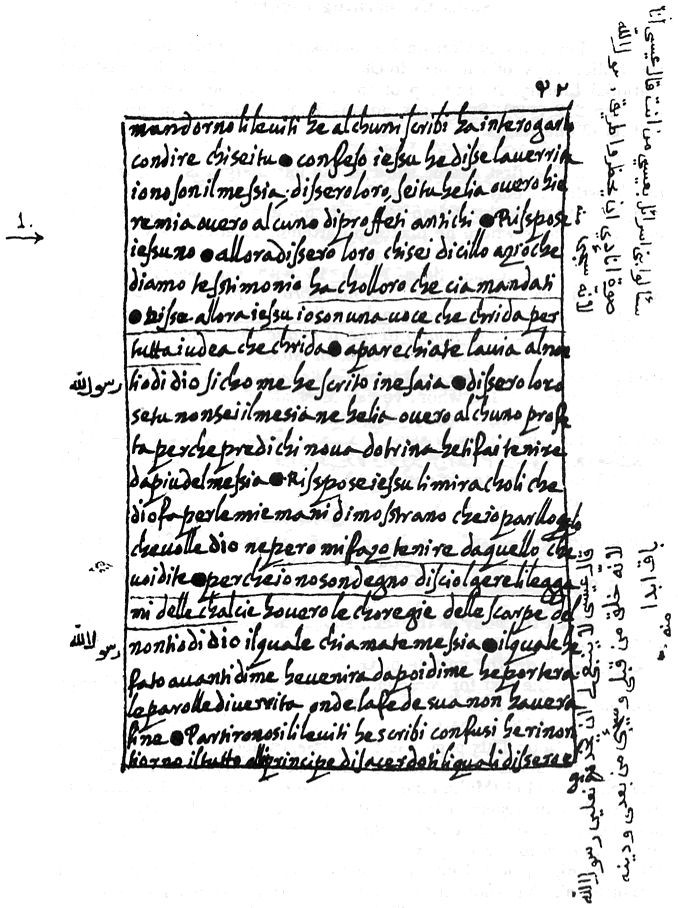 ٤٢
mandorno li leuiti he alchuni scribi ha interogarlo
condire chi sei tu ● confeso iessu he disse la uerrita
io no son il messia; dissero loro, sei tu helia ouero hie
remia ouero alcuno di proffeti antichi ● Risspose
1.
iessu no ● allora dissero loro chi sei dicillo azio che
diamo testimonio ha cholloro che cia mandati
● Disse allora iessu io son una uoce che chrida per
tutta iudea che chrida ● aparechiate la uia al no
رسول الله
tio di dio sicho me he scrito in esaia ● dissero loro
se tu non sei il mesia ne helia ouero alchuno profe
ta perche predichi noua dotrina he ti fai tenire
da piu del messia ● Risspose iessu li miracholi che
dio fa per le mie mani dimosstrano che io parllo
che uolle dio ne pero mi fazo tenire da quello che
uoi dite ● perche io no son degno di sciolgere li lega
mi delle chalcie houero le choregie delle scarpe del
رسول الله
nontio di dio il quale chiamate messia ● il quale he
fato auanti di me he uenira da poi di me he portera
le parolle di uerrita onde la fede sua non hauera
fine ● Partironosi li leuiti he scribi confusi he rinon
tiorno il tutto alli principe di sacerdoti li quali dissero
سألوا بني اسرائل بعيسى من انت قال عيسى انا
صوة انادي ان يحضروا طريق رسول الله
لانه سيجئ
قال عيسى لا ينبغي لي ان يخدم نعليي رسول الله
لانه خلق من قبلي وسيجئ من بعدي ودينه
باق ابدا
منه